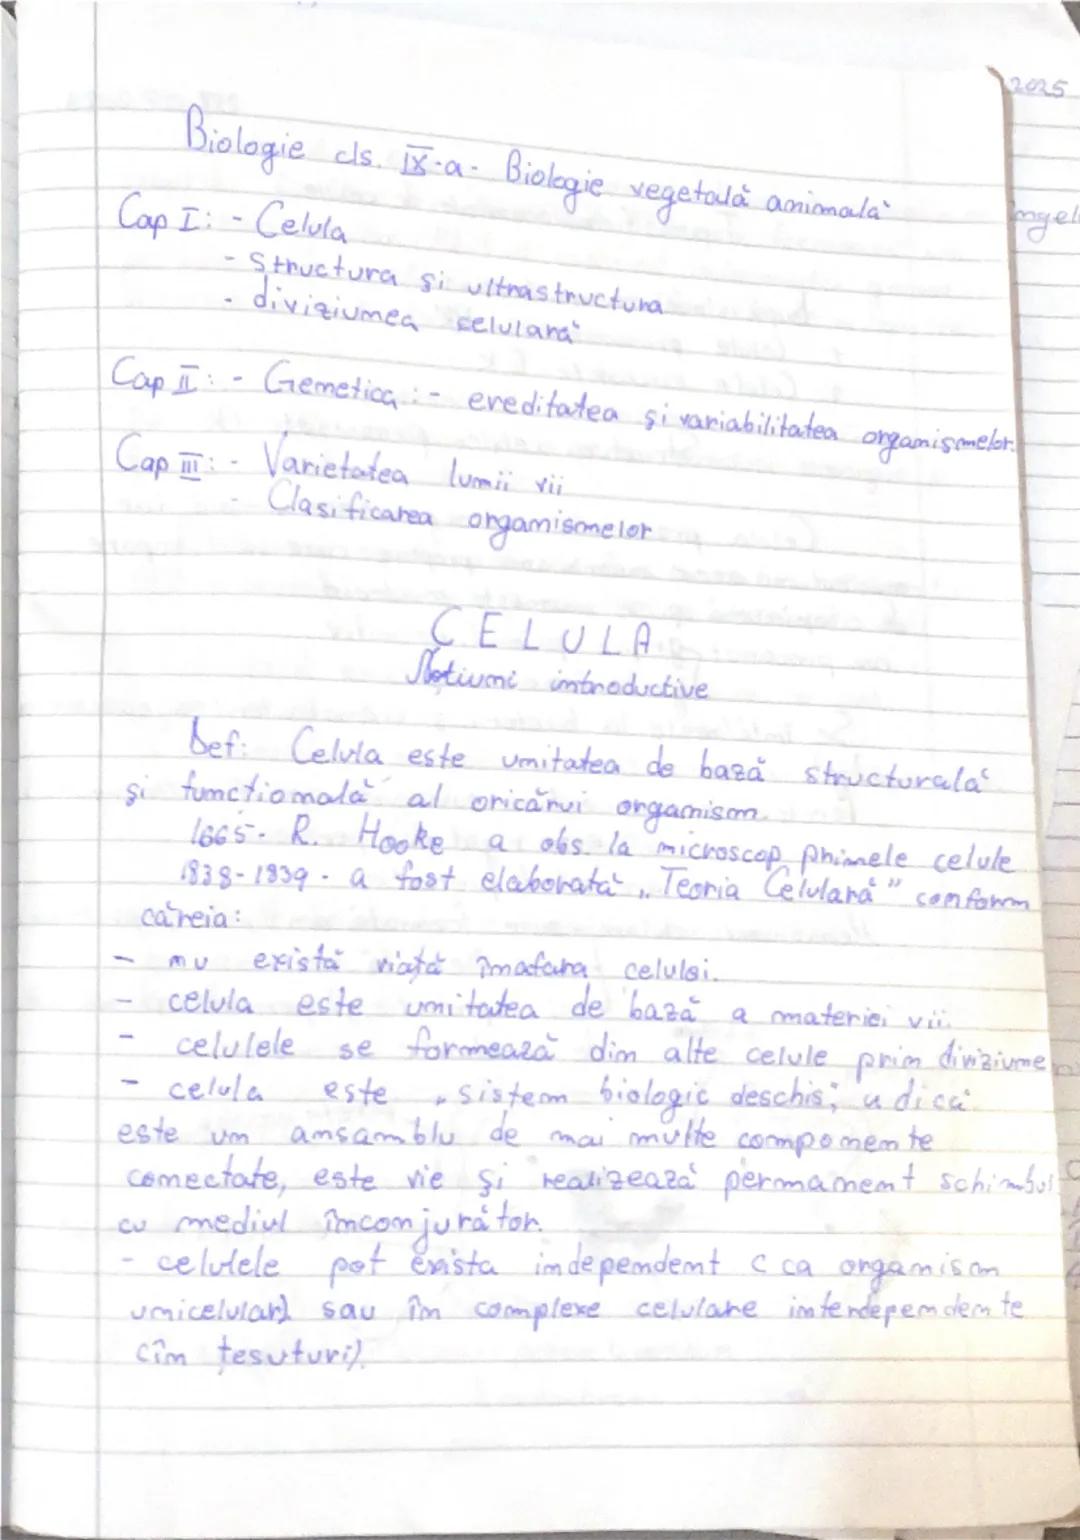 2025
Biologie cls. IX-a - Biologie vegetală animală
Cap I: - Celula
- Structura și ultrastructura
- diviziunea celulară
Cap II: - Genetica: - ereditatea și variabilitatea organismelor.
Cap III: - Varietatea lumii vii
- Clasificarea organismelor
CELULA
Noțiuni introductive
Def: Celula este unitatea de bază structurală
și funcțională al oricărui organism.
1665 - R. Hooke a obs. la microscop primele celule
1838-1839 - a fost elaborată „Teoria Celulară" conform
căreia:
- nu există viață înafara celulei.
- celula este unitatea de bază a materiei vii.
- celulele se formează din alte celule prin diviziune
- celula este „sistem biologic deschis; adică
este un ansamblu de mai multe componente
conectate, este vie și realizează permanent schimbul
cu mediul înconjurător.
- celulele pot exista independent (ca organism
unicelular) sau în complexe celulare interdependente
(în țesuturi).